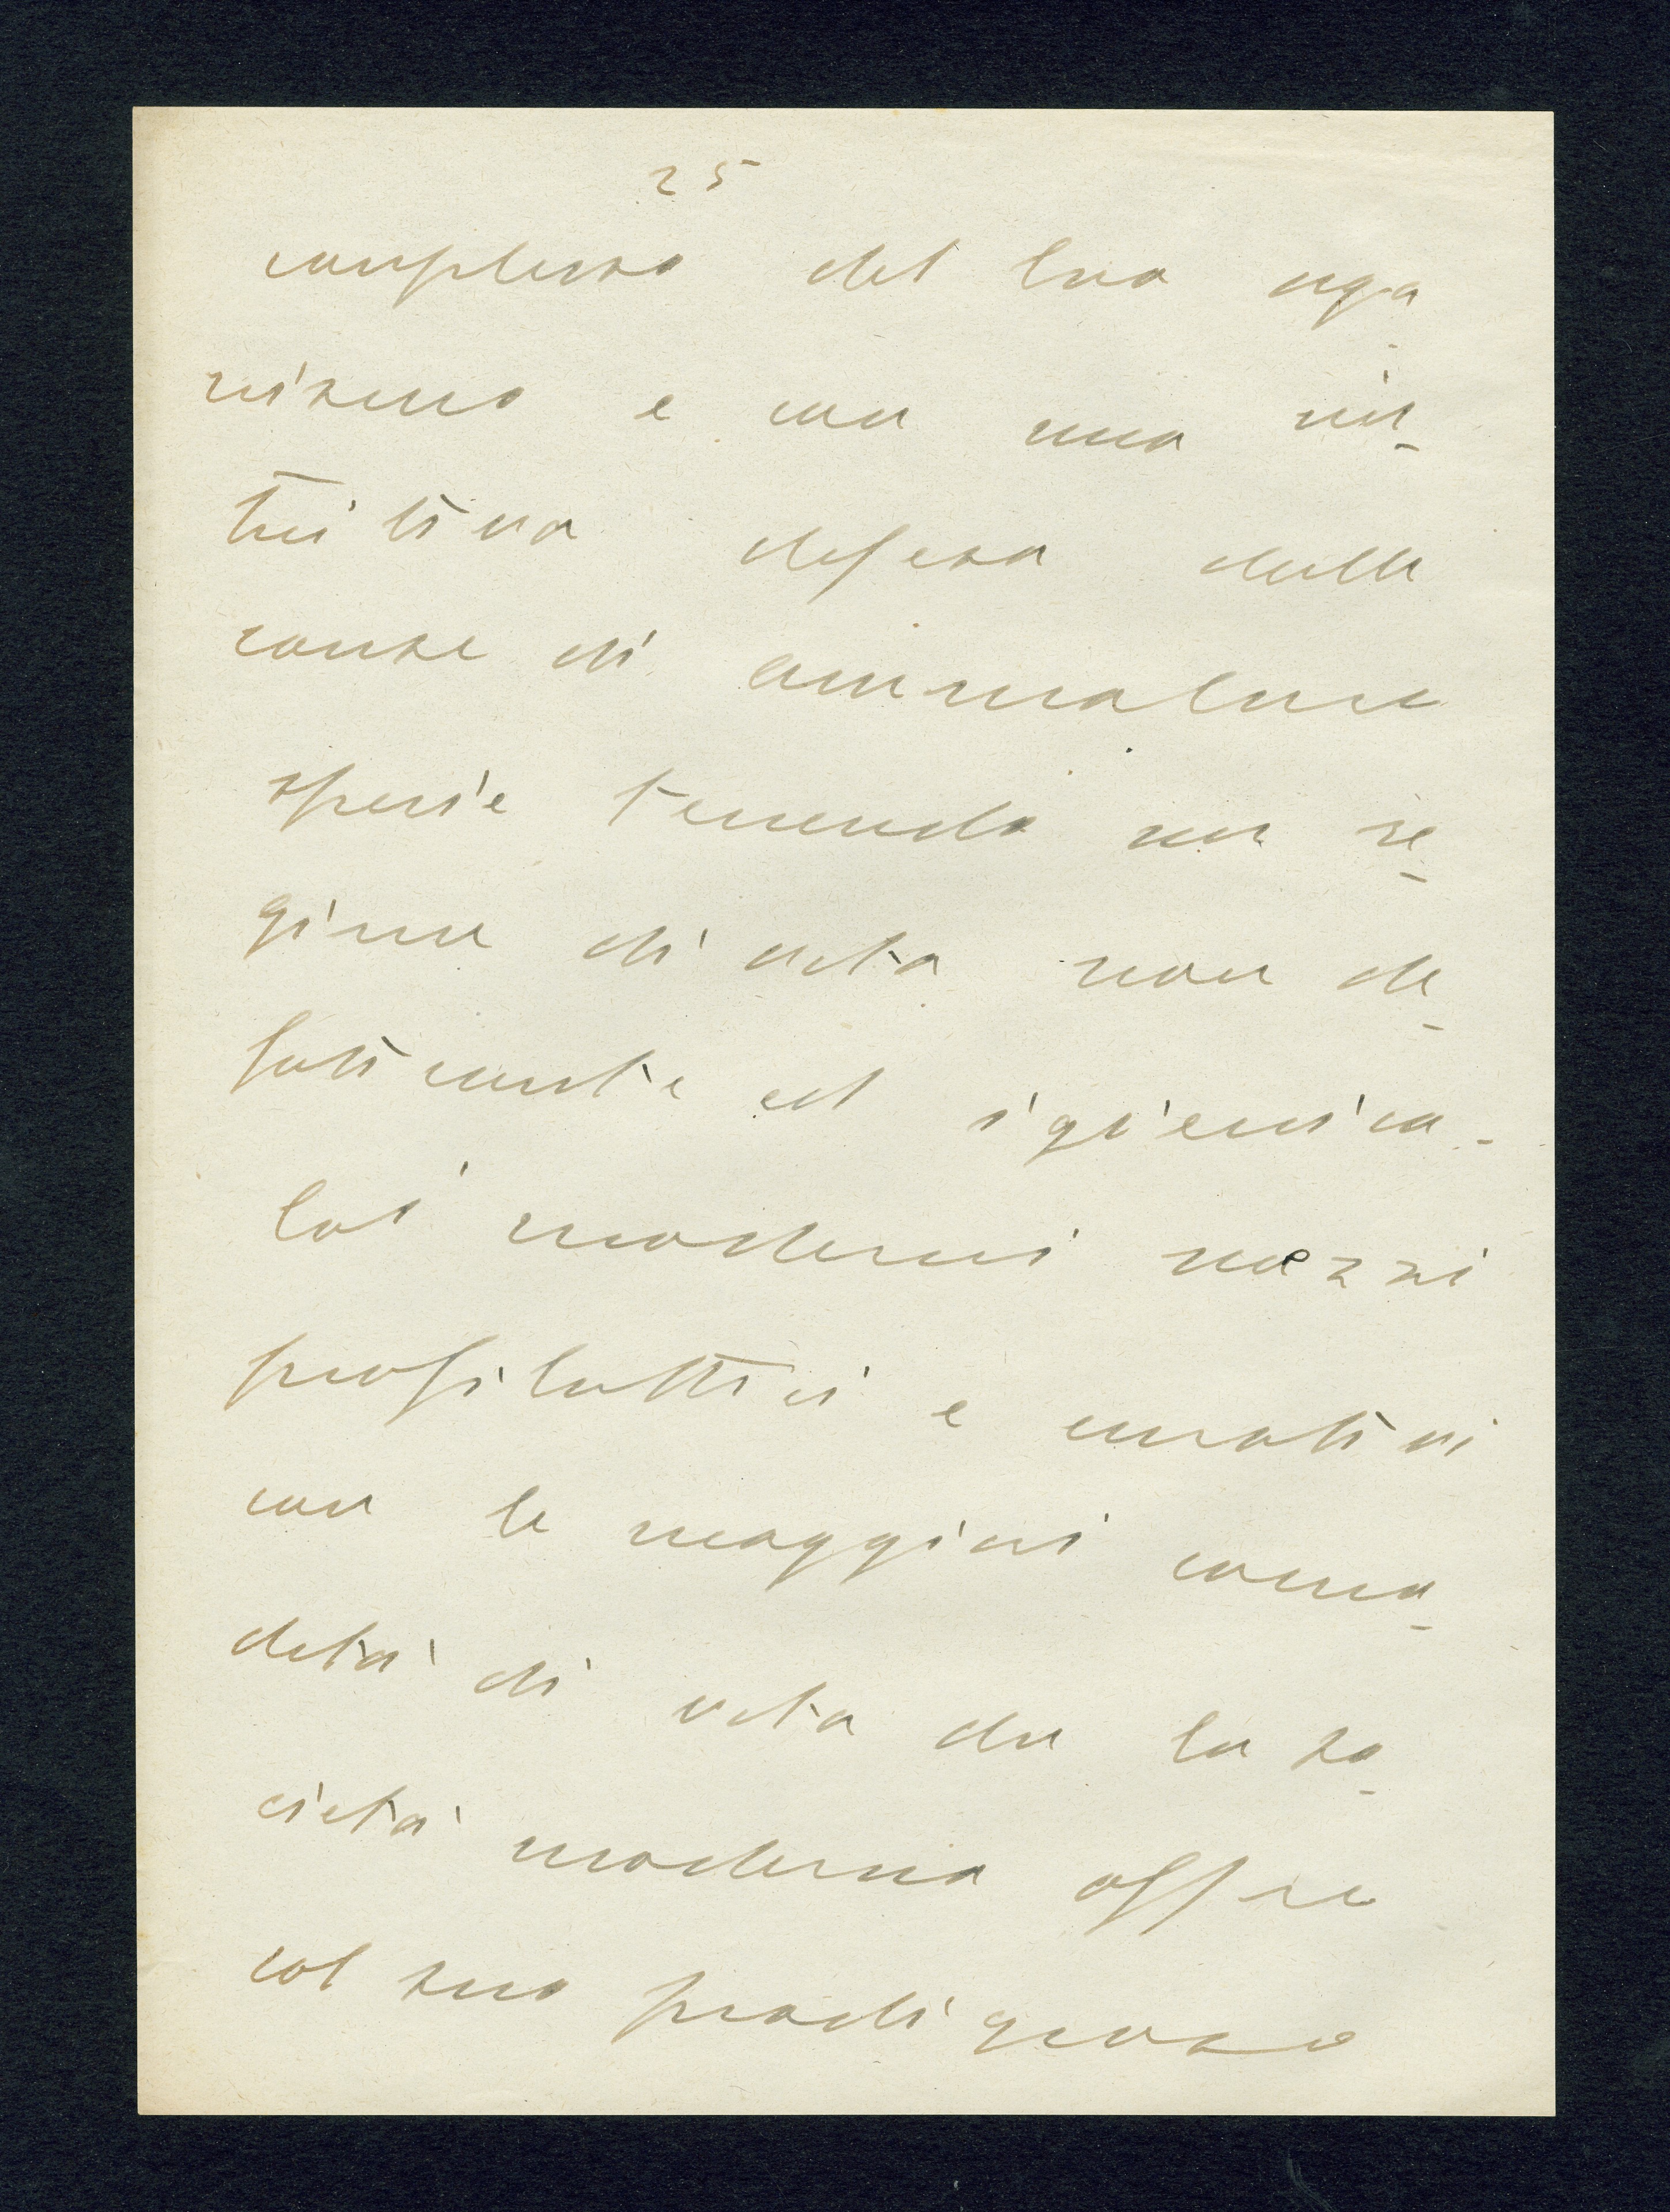 25
complesso del loro orga-
nismo e con una in-
tuitiva difesa dalle
cause di ammalare
specie tenendo un re-
gime di vita non de-
bilitante ed igienico.
coi moderni mezzi
profilattici e curativi
con le maggiori como-
dità di vita che la so-
cietà moderna offre
col suo prodigioso